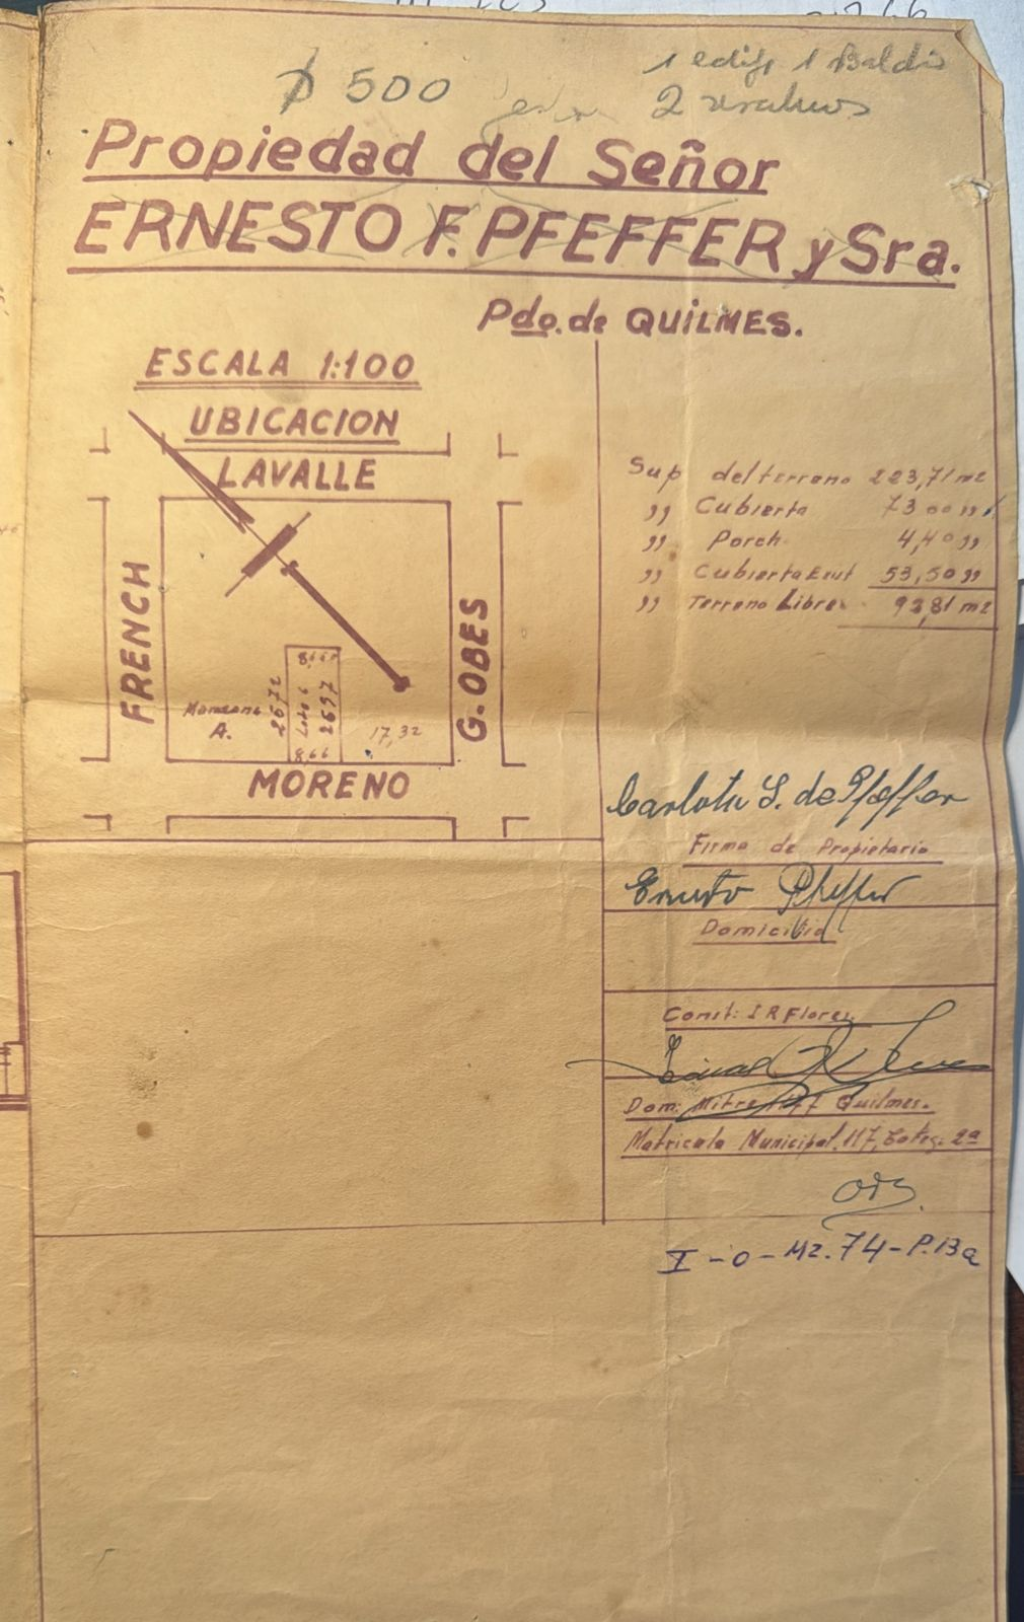 $ 500
1 edif. 1 Baldio
2
Propiedad del Señor
ERNESTO F. PFEFFER y Sra.
Pdo. de QUILMES.
ESCALA 1:100
UBICACION
LAVALLE
FRENCH
G. OBES
MORENO
Manzana
A.
26,72
Lote 6
26,97
8,66
8,66
17,32
Sup del terreno 223,71 m2
„ Cubierta 73 00 „
„ Porch 4,40 „
„ Cubierta Exist 53,50 „
„ Terreno Libre 92,81 m2
Carlota S. de Pfeffer
Firma de Propietario
Ernesto Pfeffer
Domicilio
Const: I R Flores
Dom: Mitre Quilmes.
Matricula Municipal. 117, Categ. 2ª
I - O - Mz. 74 - P. 13a